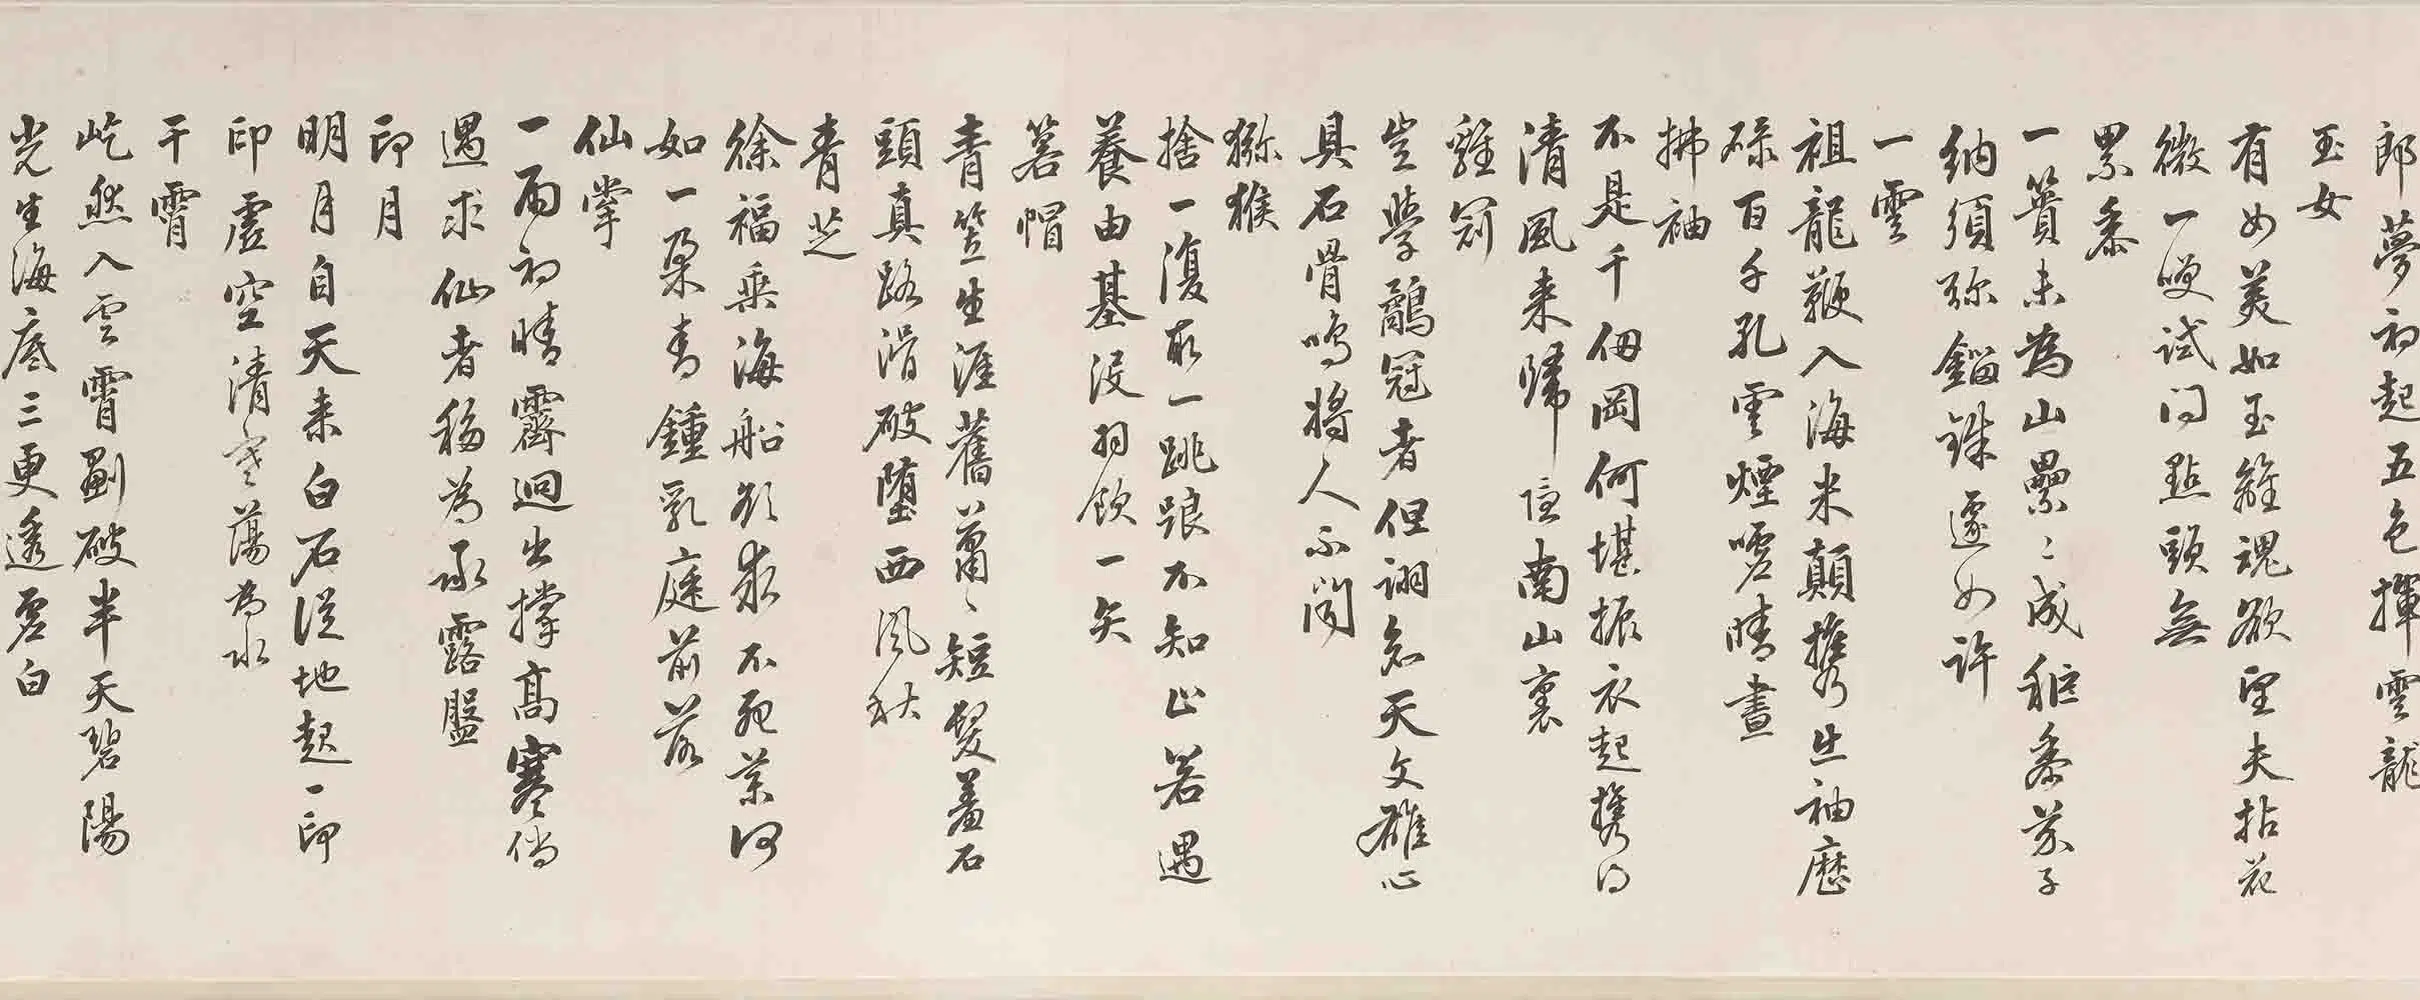 郎夢初起五色揮雲龍
玉女
有女美如玉離魂欲望夫拈花
微一哂試問點頭無
累黍
一簣未為山纍纍成秬黍芥子
納須彌錙銖遽如許
一雲
祖龍鞭入海米顛攜出袖歷
碌百千孔雲煙噓晴晝
拂袖
不是千仞岡何堪振衣起攜得
清風來歸臥南山裏
雞冠
豈學鶡冠者但詡知天文雄心
具石骨鳴將人不聞
獼猴
捨一復取一跳踉不知止若遇
養由基沒羽飲一矢
箬帽
青笠生涯舊蕭蕭短髮羞石
頭真路滑破墮西風秋
青芝
徐福乘海船欲求不死藥何
如一朵青鍾乳庭前落
仙掌
一雨初晴霽迥出撐高寒倘
遇求仙者移為承露盤
印月
明月自天來白石從地起一印
印虛空清寒蕩為水
干霄
屹然入雲霄劚破半天碧陽
光生海底三更透虛白